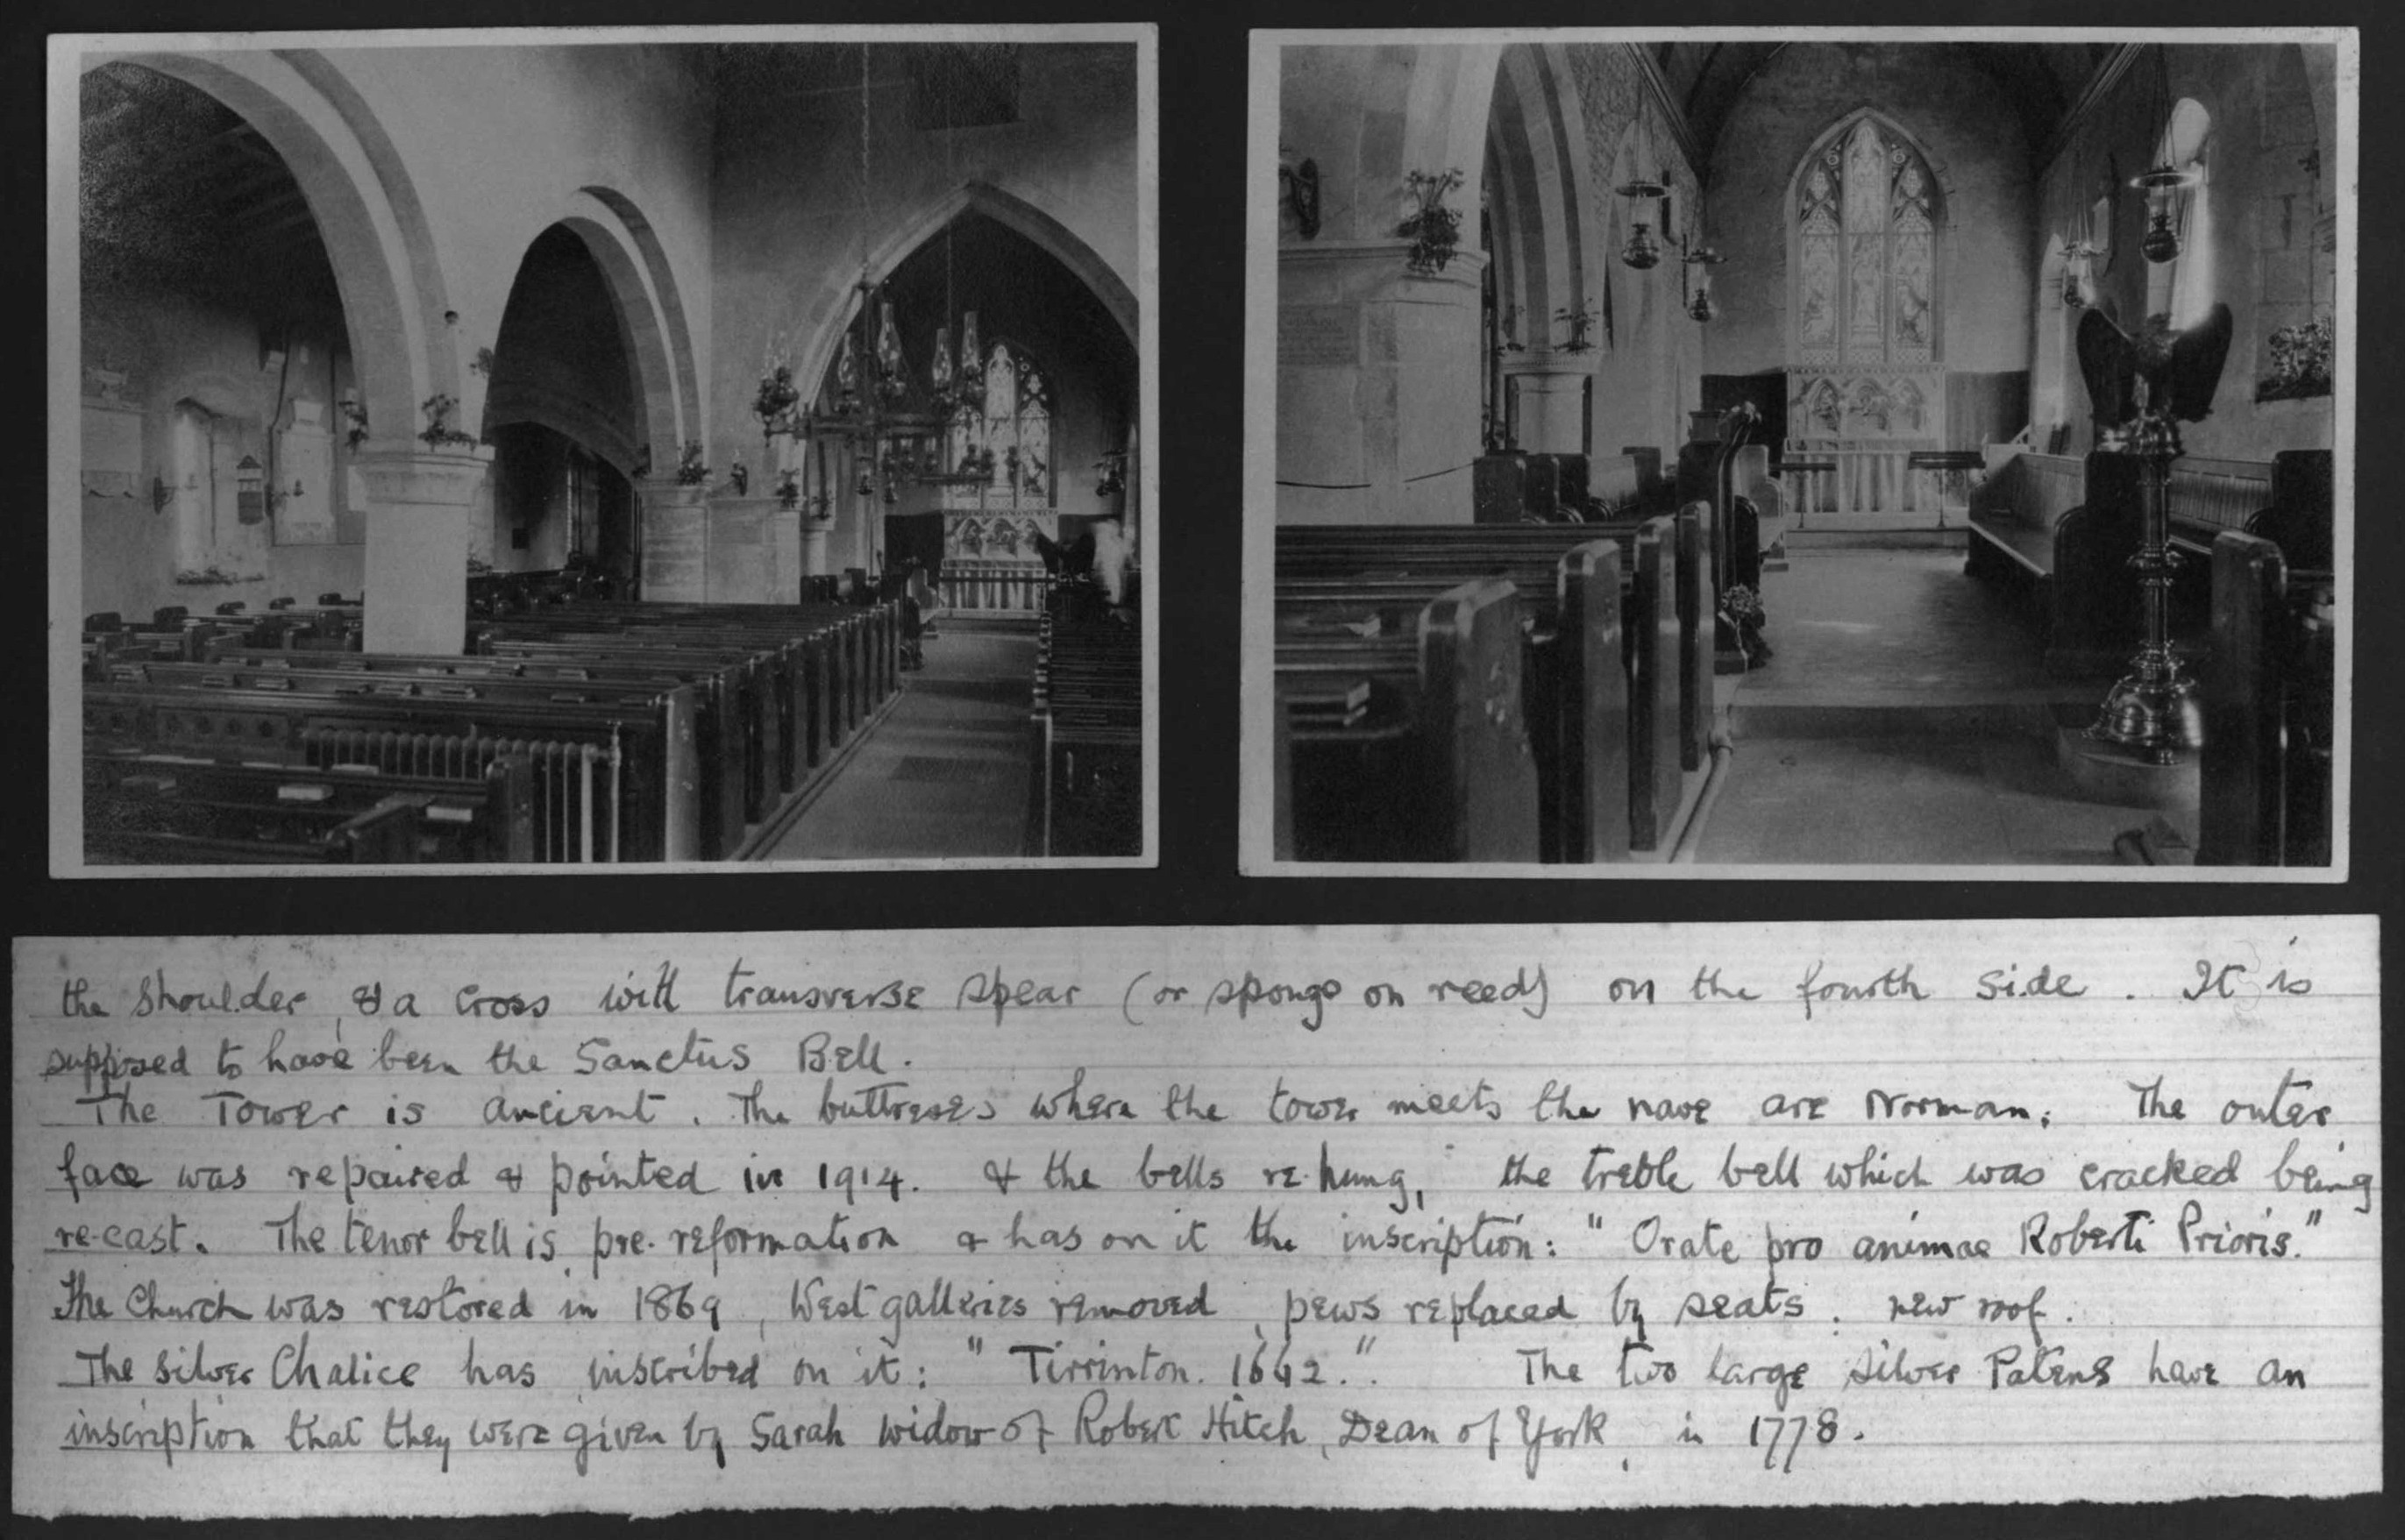 the shoulder, & a cross with transverse spear (or sponge on reed) on the fourth side. It is
supposed to have been the Sanctus Bell.
The Tower is ancient. The buttresses where the tower meets the nave are Norman; The outer
face was repaired & pointed in 1914. & the bells re-hung, the treble bell which was cracked being
re-cast. The tenor bell is pre-reformation & has on it the inscription: "Orate pro animae Roberti Prioris."
The Church was restored in 1869, West galleries removed, pews replaced by seats; new roof.
The silver Chalice has inscribed on it: "Tirrinton. 1642.". The two large silver Patens have an
inscription that they were given by Sarah widow of Robert Hitch, Dean of York, in 1778.